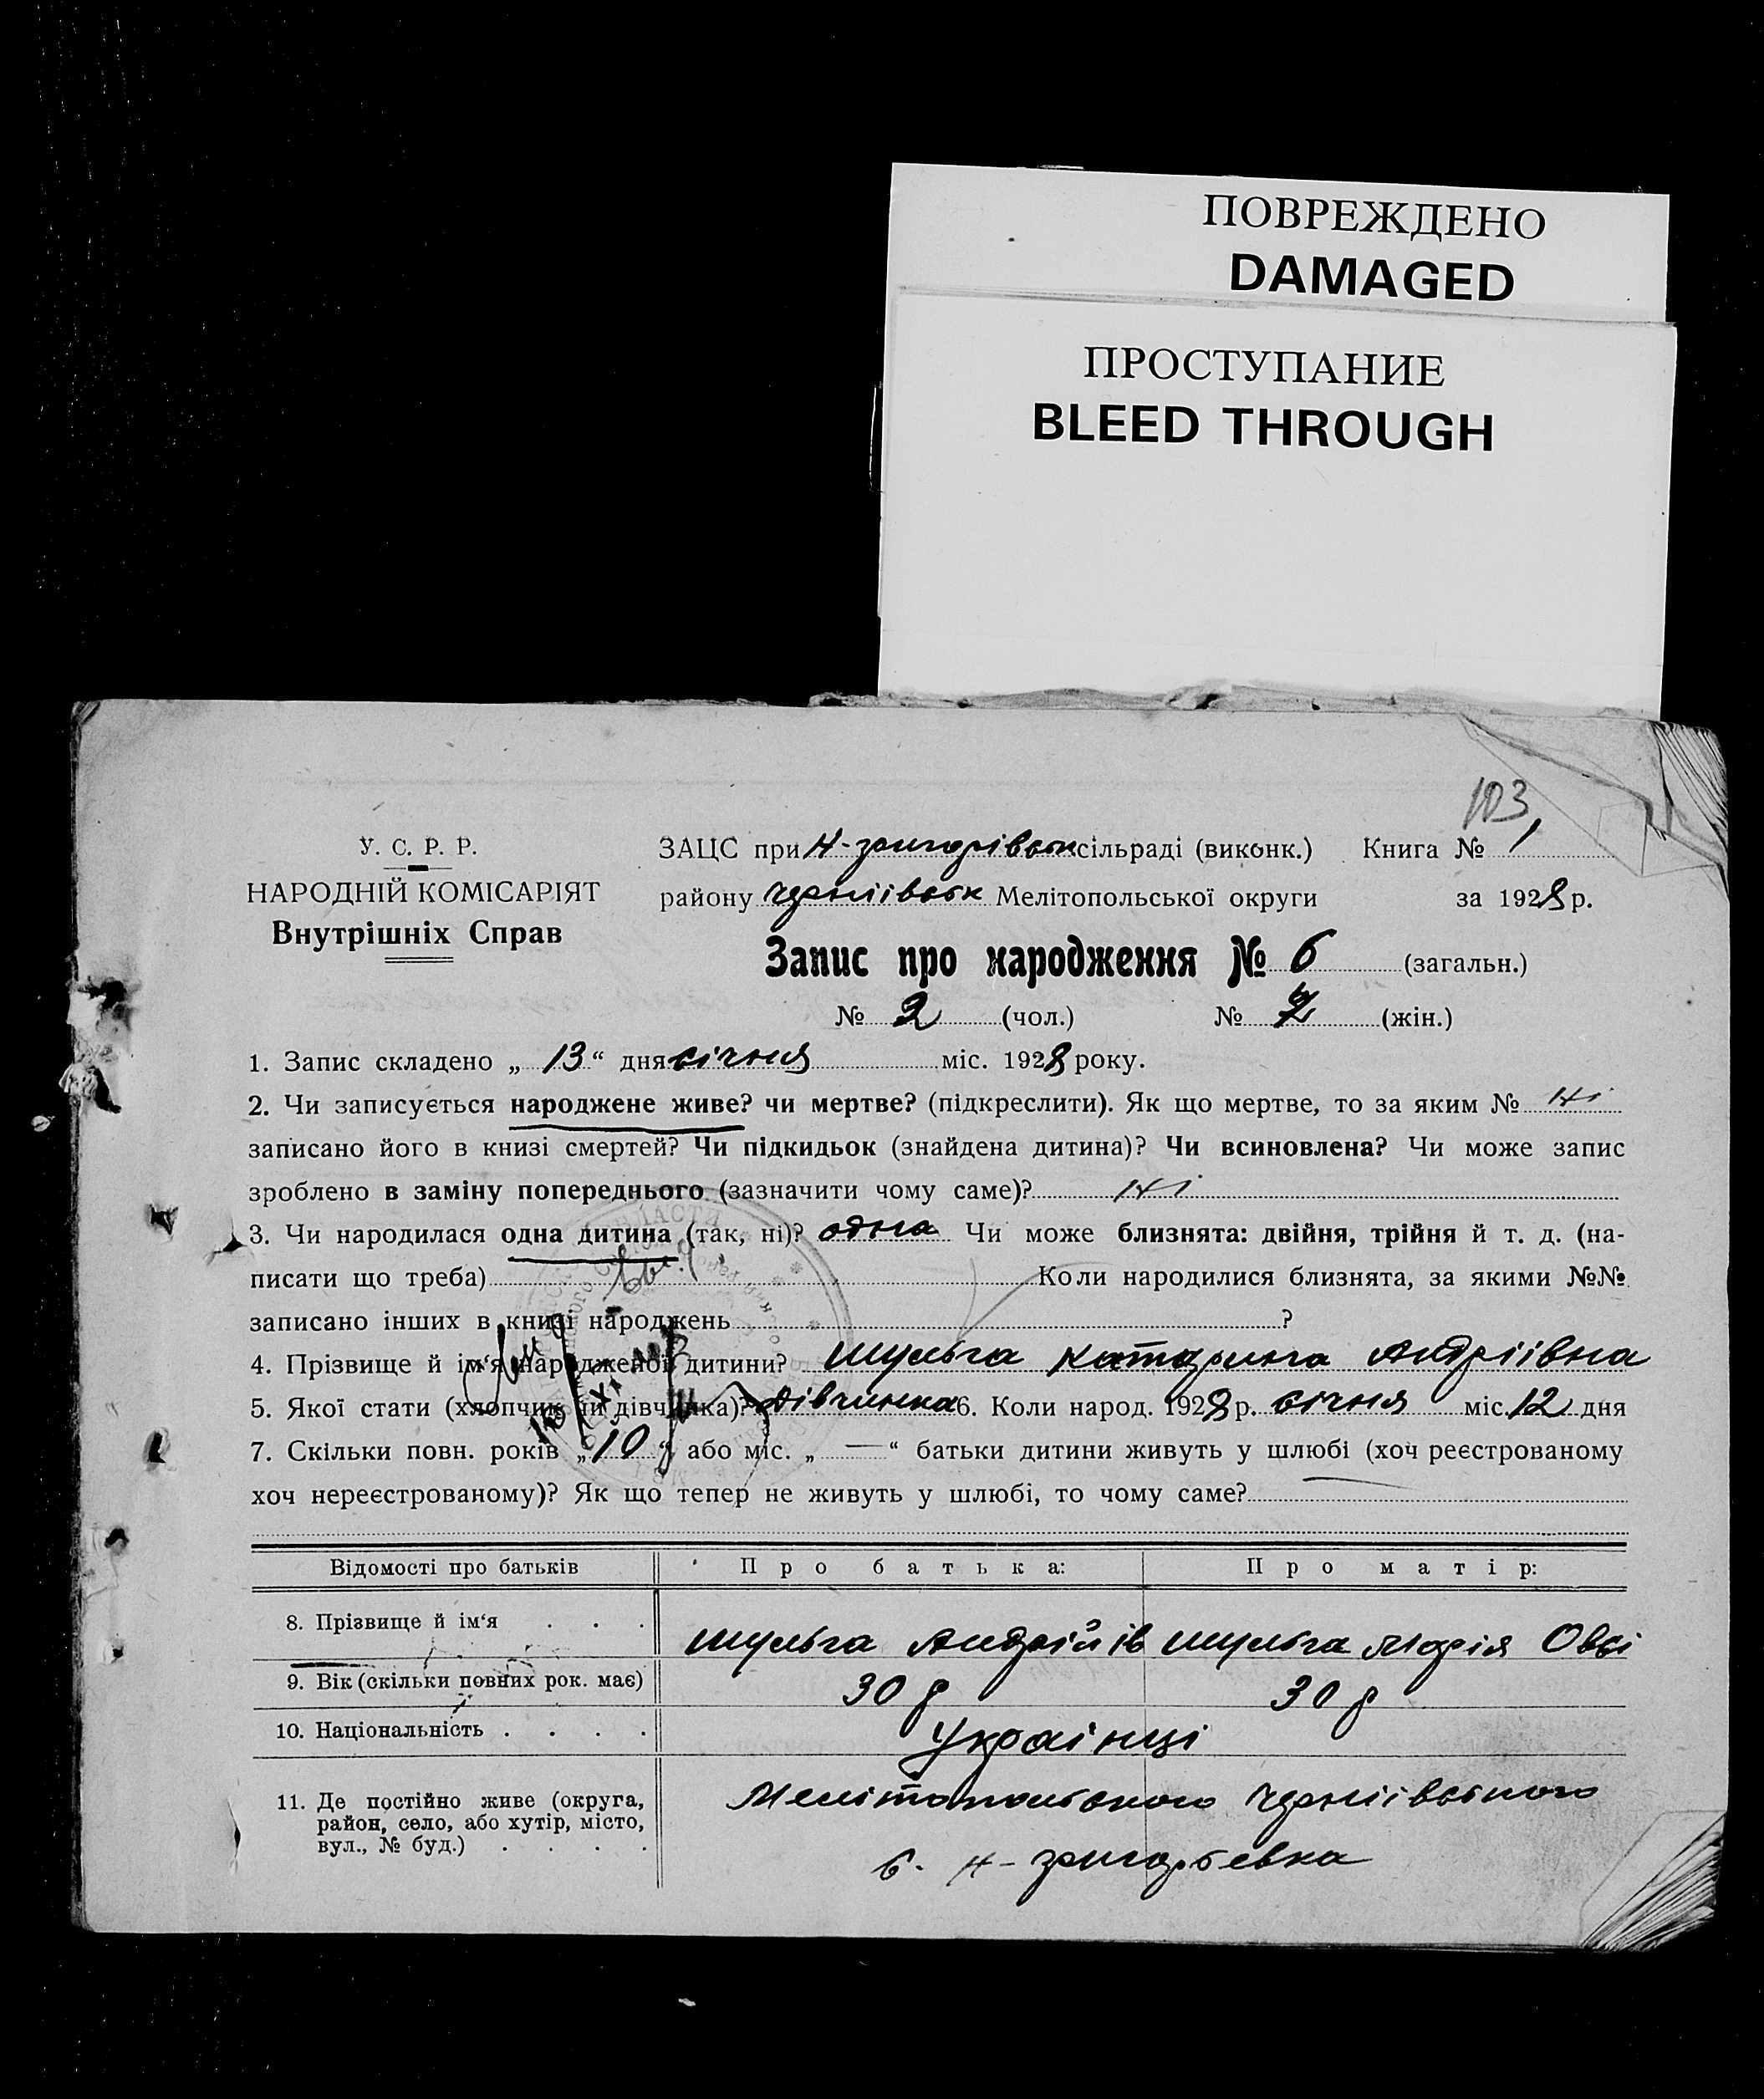 ПОВРЕЖДЕНО
DAMAGED
ПРОСТУПАНИЕ
BLEED THROUGH
103
У. С. Р. Р.
НАРОДНІЙ КОМІСАРІЯТ
Внутрішніх Справ
ЗАЦС при Н-григорівськ сільраді (виконк.) Книга № 1
району Черніівськ Мелітопольської округи за 1928 р.
Запис про народження № 6 (загальн.)
№ 2 (чол.) № (жін.)
1. Запис складено „ 13 “ дня січня міс. 1928 року.
2. Чи записується народжене живе? чи мертве? (підкреслити). Як що мертве, то за яким № Ні
записано його в книзі смертей? Чи підкидьок (знайдена дитина)? Чи всиновлена? Чи може запис
зроблено в заміну попереднього (зазначити чому саме)? Ні
3. Чи народилася одна дитина (так, ні)? одна Чи може близнята: двійня, трійня й т. д. (на-
писати що треба) Коли народилися близнята, за якими №№
записано інших в книзі народжень ?
4. Прізвище й ім‘я народженої дитини? Шульга Катерина Андріівна
5. Якої стати (хлопчик чи дівчинка)? Дівчинка 6. Коли народ. 1928 р. січня міс. 12 дня
7. Скільки повн. років „ 10 “ або міс. „ — “ батьки дитини живуть у шлюбі (хоч реєстрованому
хоч нереєстрованому)? Як що тепер не живуть у шлюбі, то чому саме?
Відомості про батьків Про батька: Про матір:
8. Прізвище й ім‘я . . . Шульга Андрій ів Шульга Марія Овсі
9. Вік (скільки повних рок. має) 30 р 30 р
10. Національність . . . . Українці
11. Де постійно живе (округа,
район, село, або хутір, місто,
вул., № буд.) . . . .
Мелітопольського Черніівського
с. Н-григорьевка